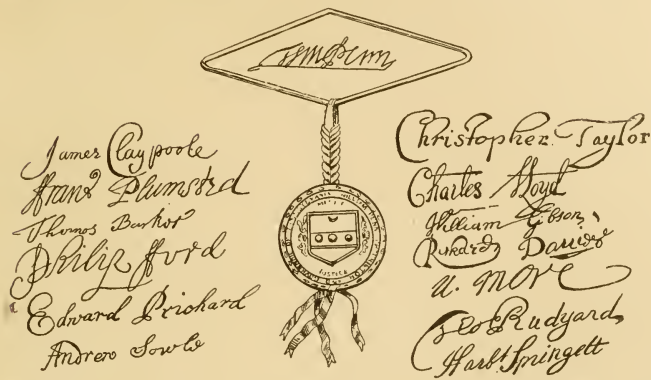 Wm Penn
James Claypoole
Franš Plumsted
Thomas Barker
Philip fford
Edward Prichard
Andrew Sowle
MERCY
JUSTICE
Christopher Taylor
Charles Lloyd
William Gibson
Richard Davies
N. More
Geo Rudyard
Harbt Springett